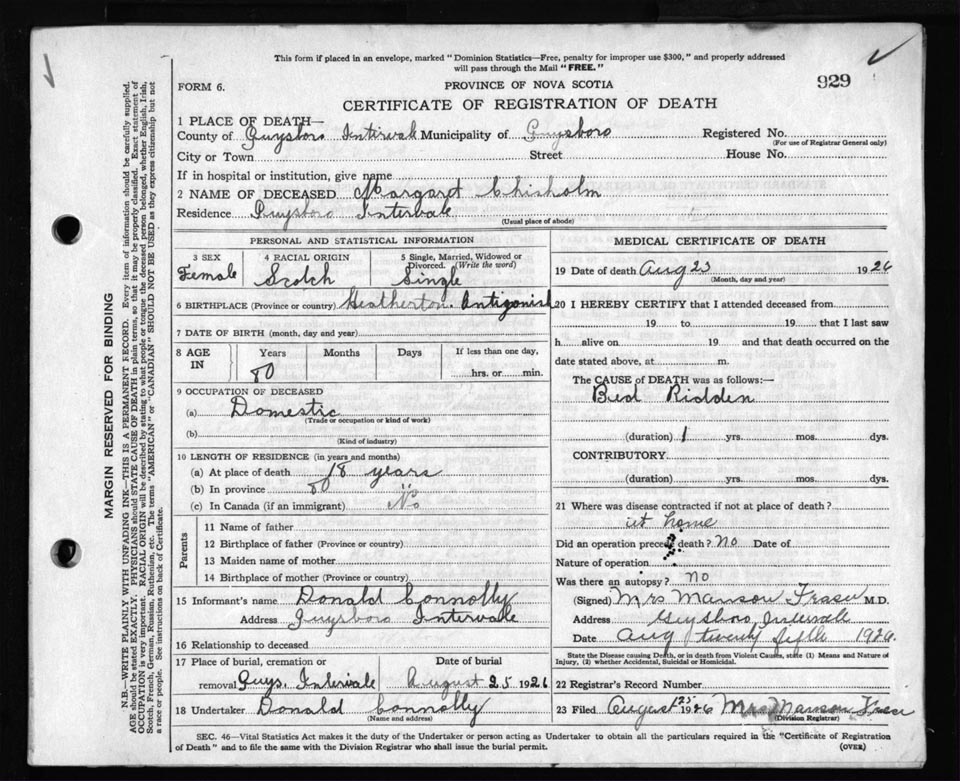 This form if placed in an envelope, marked "Dominion Statistics—Free, penalty for improper use $300," and properly addressed
will pass through the Mail "FREE."
FORM 6.
PROVINCE OF NOVA SCOTIA
929
CERTIFICATE OF REGISTRATION OF DEATH
1 PLACE OF DEATH—
County of Guysboro Intervale Municipality of Guysboro Registered No.
(For use of Registrar General only)
City or Town Street House No.
If in hospital or institution, give name
2 NAME OF DECEASED Margaret Chisholm
Residence Guysboro Intervale
(Usual place of abode)
PERSONAL AND STATISTICAL INFORMATION
3 SEX
Female
4 RACIAL ORIGIN
Scotch
5 Single, Married, Widowed or
Divorced. (Write the word)
Single
6 BIRTHPLACE (Province or country) Heatherton. Antigonish
7 DATE OF BIRTH (month, day and year)
8 AGE
IN
Years
80
Months
Days
If less than one day,
hrs. or min.
9 OCCUPATION OF DECEASED
(a) Domestic
(Trade or occupation or kind of work)
(b)
(Kind of industry)
10 LENGTH OF RESIDENCE (in years and months)
(a) At place of death 18 years
(b) In province 80
(c) In Canada (if an immigrant) No
Parents
11 Name of father
12 Birthplace of father (Province or country)
13 Maiden name of mother
14 Birthplace of mother (Province or country)
15 Informant's name Donald Connolly
Address Guysboro Intervale
16 Relationship to deceased
17 Place of burial, cremation or
removal Guys. Intervale
Date of burial
August 25 1926
18 Undertaker Donald Connolly
(Name and address)
MEDICAL CERTIFICATE OF DEATH
19 Date of death Aug 23 1926
(Month, day and year)
20 I HEREBY CERTIFY that I attended deceased from
19 to 19 that I last saw
h alive on 19 and that death occurred on the
date stated above, at m.
The CAUSE of DEATH was as follows:—
Bed Ridden
(duration) 1 yrs. mos. dys.
CONTRIBUTORY
(duration) yrs. mos. dys.
21 Where was disease contracted if not at place of death?
at home
Did an operation precede death? No Date of
Nature of operation
Was there an autopsy? no
(Signed) Mrs Manson Fraser M.D.
Address Guysboro Intervale
Date Aug twenty fifth 1926.
State the Disease causing Death, or in death from Violent Causes, state (1) Means and Nature of
Injury, (2) whether Accidental, Suicidal or Homicidal.
22 Registrar's Record Number
23 Filed August 25 1926 Mrs Manson Fraser
(Division Registrar)
SEC. 46—Vital Statistics Act makes it the duty of the Undertaker or person acting as Undertaker to obtain all the particulars required in the "Certificate of Registration
of Death" and to file the same with the Division Registrar who shall issue the burial permit.
(OVER)
MARGIN RESERVED FOR BINDING
N.B.—WRITE PLAINLY WITH UNFADING INK—THIS IS A PERMANENT RECORD. Every item of information should be carefully supplied.
AGE should be stated EXACTLY. PHYSICIANS should STATE CAUSE OF DEATH in plain terms, so that it may be properly classified. Exact statement of
OCCUPATION is very important. RACIAL ORIGIN will be described by stating to what people or tongue the deceased person belonged, whether English, Irish,
Scotch, French, German, Russian, Ruthenian, etc. The terms "AMERICAN" or "CANADIAN" SHOULD NOT BE USED as they express citizenship but not
a race or people. See instructions on back of Certificate.